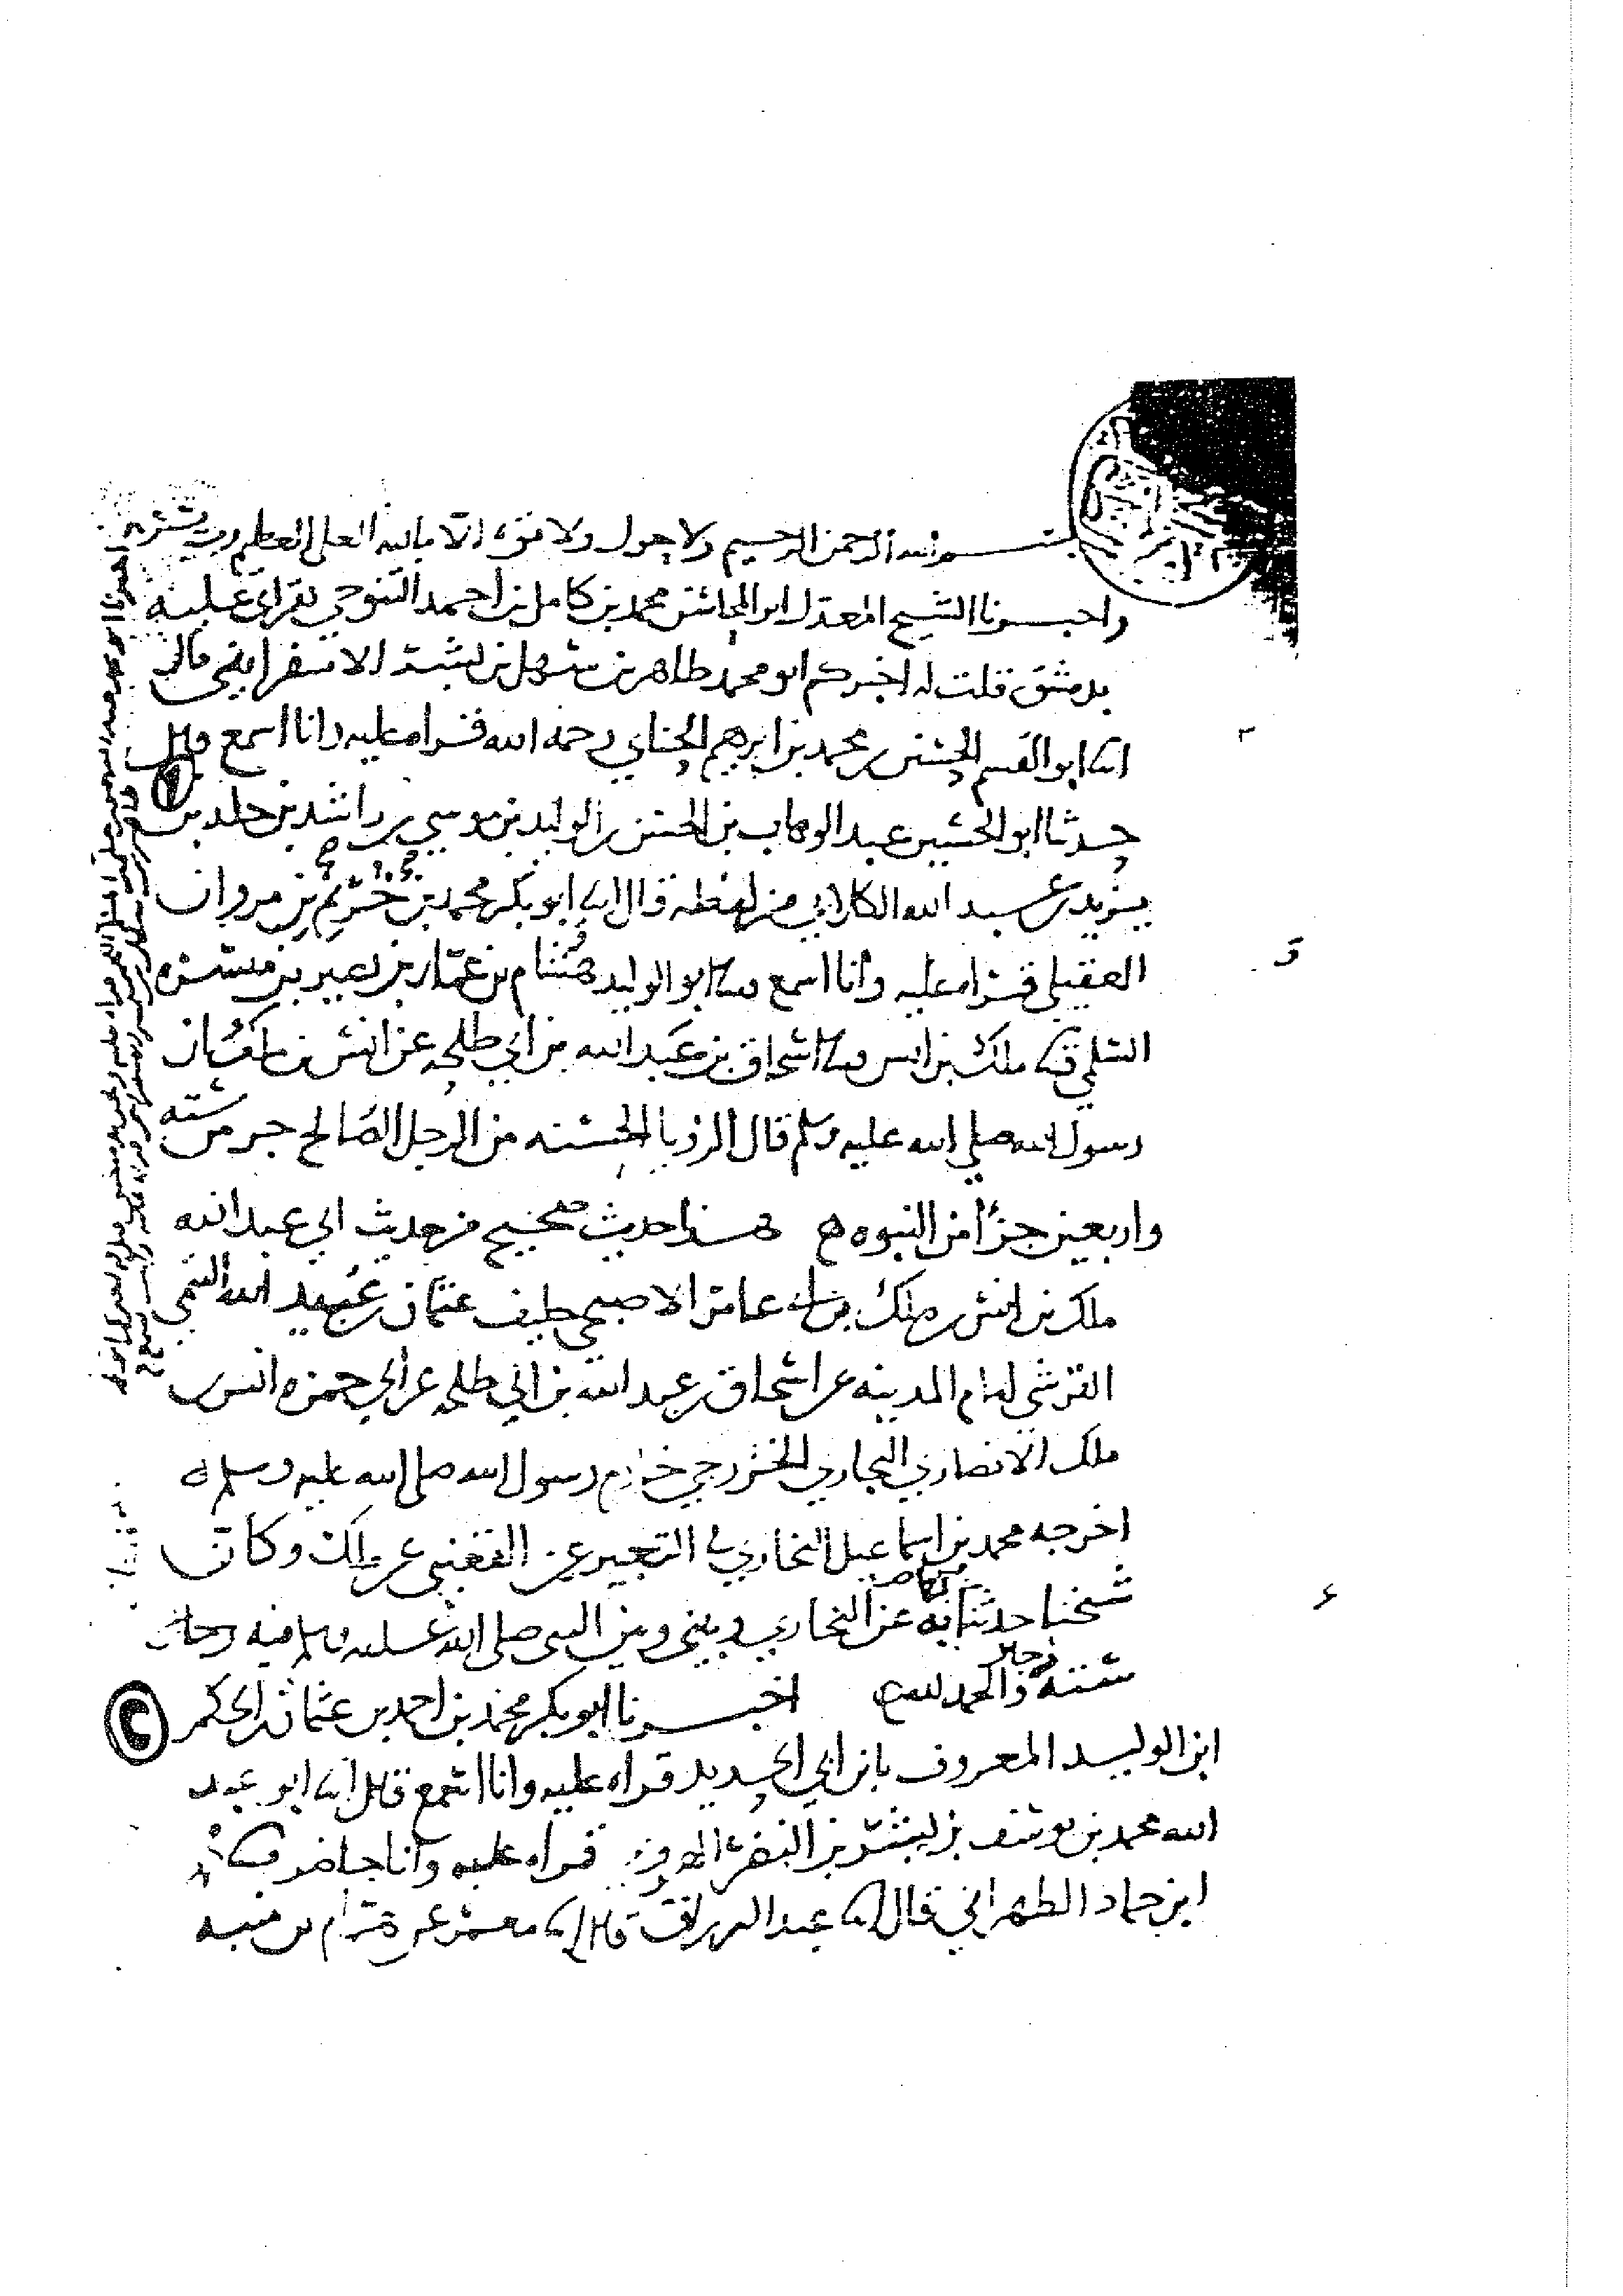 بسم الله الرحمن الرحيم ولا حول ولا قوة الا بالله العلي العظيم رب يسر
واخبرنا الشيخ المعدل ابو المحاسن محمد بن كامل بن احمد التنوخي بقراتي عليه
بدمشق قلت له اخبركم ابو محمد طاهر بن سهل بن بشر الاسفرايني قال
انا ابو القسم الحسين بن محمد بن ابرهيم الحنائي رحمه الله قراه عليه وانا اسمع قال
حدثنا ابو الحسين عبد الوهاب بن الحسن بن الوليد بن موسى بن راشد بن خلد بن
يزيد بن عبد الله الكلابي من لفظه قال انا ابو بكر محمد بن خريم بن مروان
العقيلي قراه عليه وانا اسمع ثنا ابو الوليد هشام بن عمار بن نصير بن ميسره
السلمي ثنا ملك بن انس ثنا اسحاق بن عبد الله بن ابي طلحه عن انس بن ملك ان
رسول الله صلى الله عليه وسلم قال الرؤيا الحسنه من الرجل الصالح جزء من سته
واربعين جزءا من النبوه هذا حديث صحيح من حديث ابي عبد الله
ملك بن انس بن ملك بن ابي عامر الاصبحي حليف عثمان بن عبيد الله التيمي
القرشي امام المدينه عن اسحاق بن عبد الله بن ابي طلحه عن ابي حمزه انس بن
ملك الانصاري النجاري الخزرجي خادم رسول الله صلى الله عليه وسلم
اخرجه محمد بن اسماعيل البخاري في التعبير عن القعنبي عن ملك وكان
شيخنا حدثنا به عن البخاري وبيني وبين النبي صلى الله عليه وسلم فيه رجال
سته والحمد لله اخبرنا ابو بكر محمد بن احمد بن عثمان بن ابي الحكم
ابن الوليد المعروف بابن ابي الحديد قراه عليه وانا اسمع قال انا ابو عبد
الله محمد بن يوسف بن بشر بن النضر الهروي قراه عليه وانا حاضر ثنا محمد
ابن حماد الطهراني قال انا عبد الرزاق قال انا معمر عن همام بن منبه